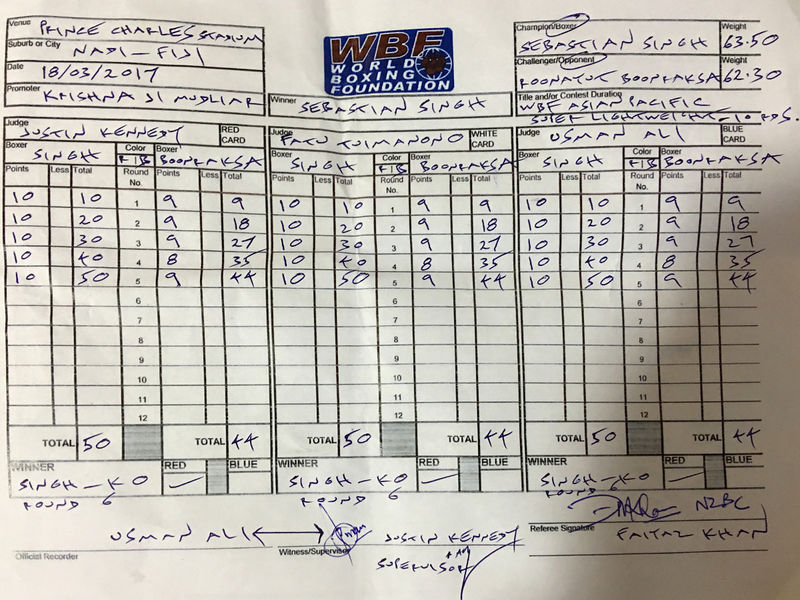 Venue PRINCE CHARLES STADIUM
Suburb or City NADI - FIJI
Date 18/03/2017
Promoter KRISHNA JI MUDLIAR
WBF
WORLD
BOXING
FOUNDATION
Winner SEBASTIAN SINGH
Champion/Boxer SEBASTIAN SINGH Weight 63.50
Challenger/Opponent ROONATUK BOONRAKSA Weight 62.30
Title and/or Contest Duration
WBF ASIAN PACIFIC
SUPER LIGHTWEIGHT - 10 RDS.
Judge JUSTIN KENNEDY RED CARD Judge FATU TUIMANONO WHITE CARD Judge USMAN ALI BLUE CARD
Boxer SINGH Color R/B Boxer BOONRAKSA Boxer SINGH Color R/B Boxer BOONRAKSA Boxer SINGH Color R/B Boxer BOONRAKSA
Points Less Total Round No. Points Less Total Points Less Total Round No. Points Less Total Points Less Total Round No. Points Less Total
10 10 1 9 9 10 10 1 9 9 10 10 1 9 9
10 20 2 9 18 10 20 2 9 18 10 20 2 9 18
10 30 3 9 27 10 30 3 9 27 10 30 3 9 27
10 40 4 8 35 10 40 4 8 35 10 40 4 8 35
10 50 5 9 44 10 50 5 9 44 10 50 5 9 44
6 6 6
7 7 7
8 8 8
9 9 9
10 10 10
11 11 11
12 12 12
TOTAL 50 TOTAL 44 TOTAL 50 TOTAL 44 TOTAL 50 TOTAL 44
WINNER RED BLUE WINNER RED BLUE WINNER RED BLUE
SINGH - KO SINGH - KO SINGH - KO
ROUND 6 ROUND 6 ROUND 6
USMAN ALI JUSTIN KENNEDY NZBC
Official Recorder Witness/Supervisor SUPERVISOR Referee Signature FAIYAZ KHAN